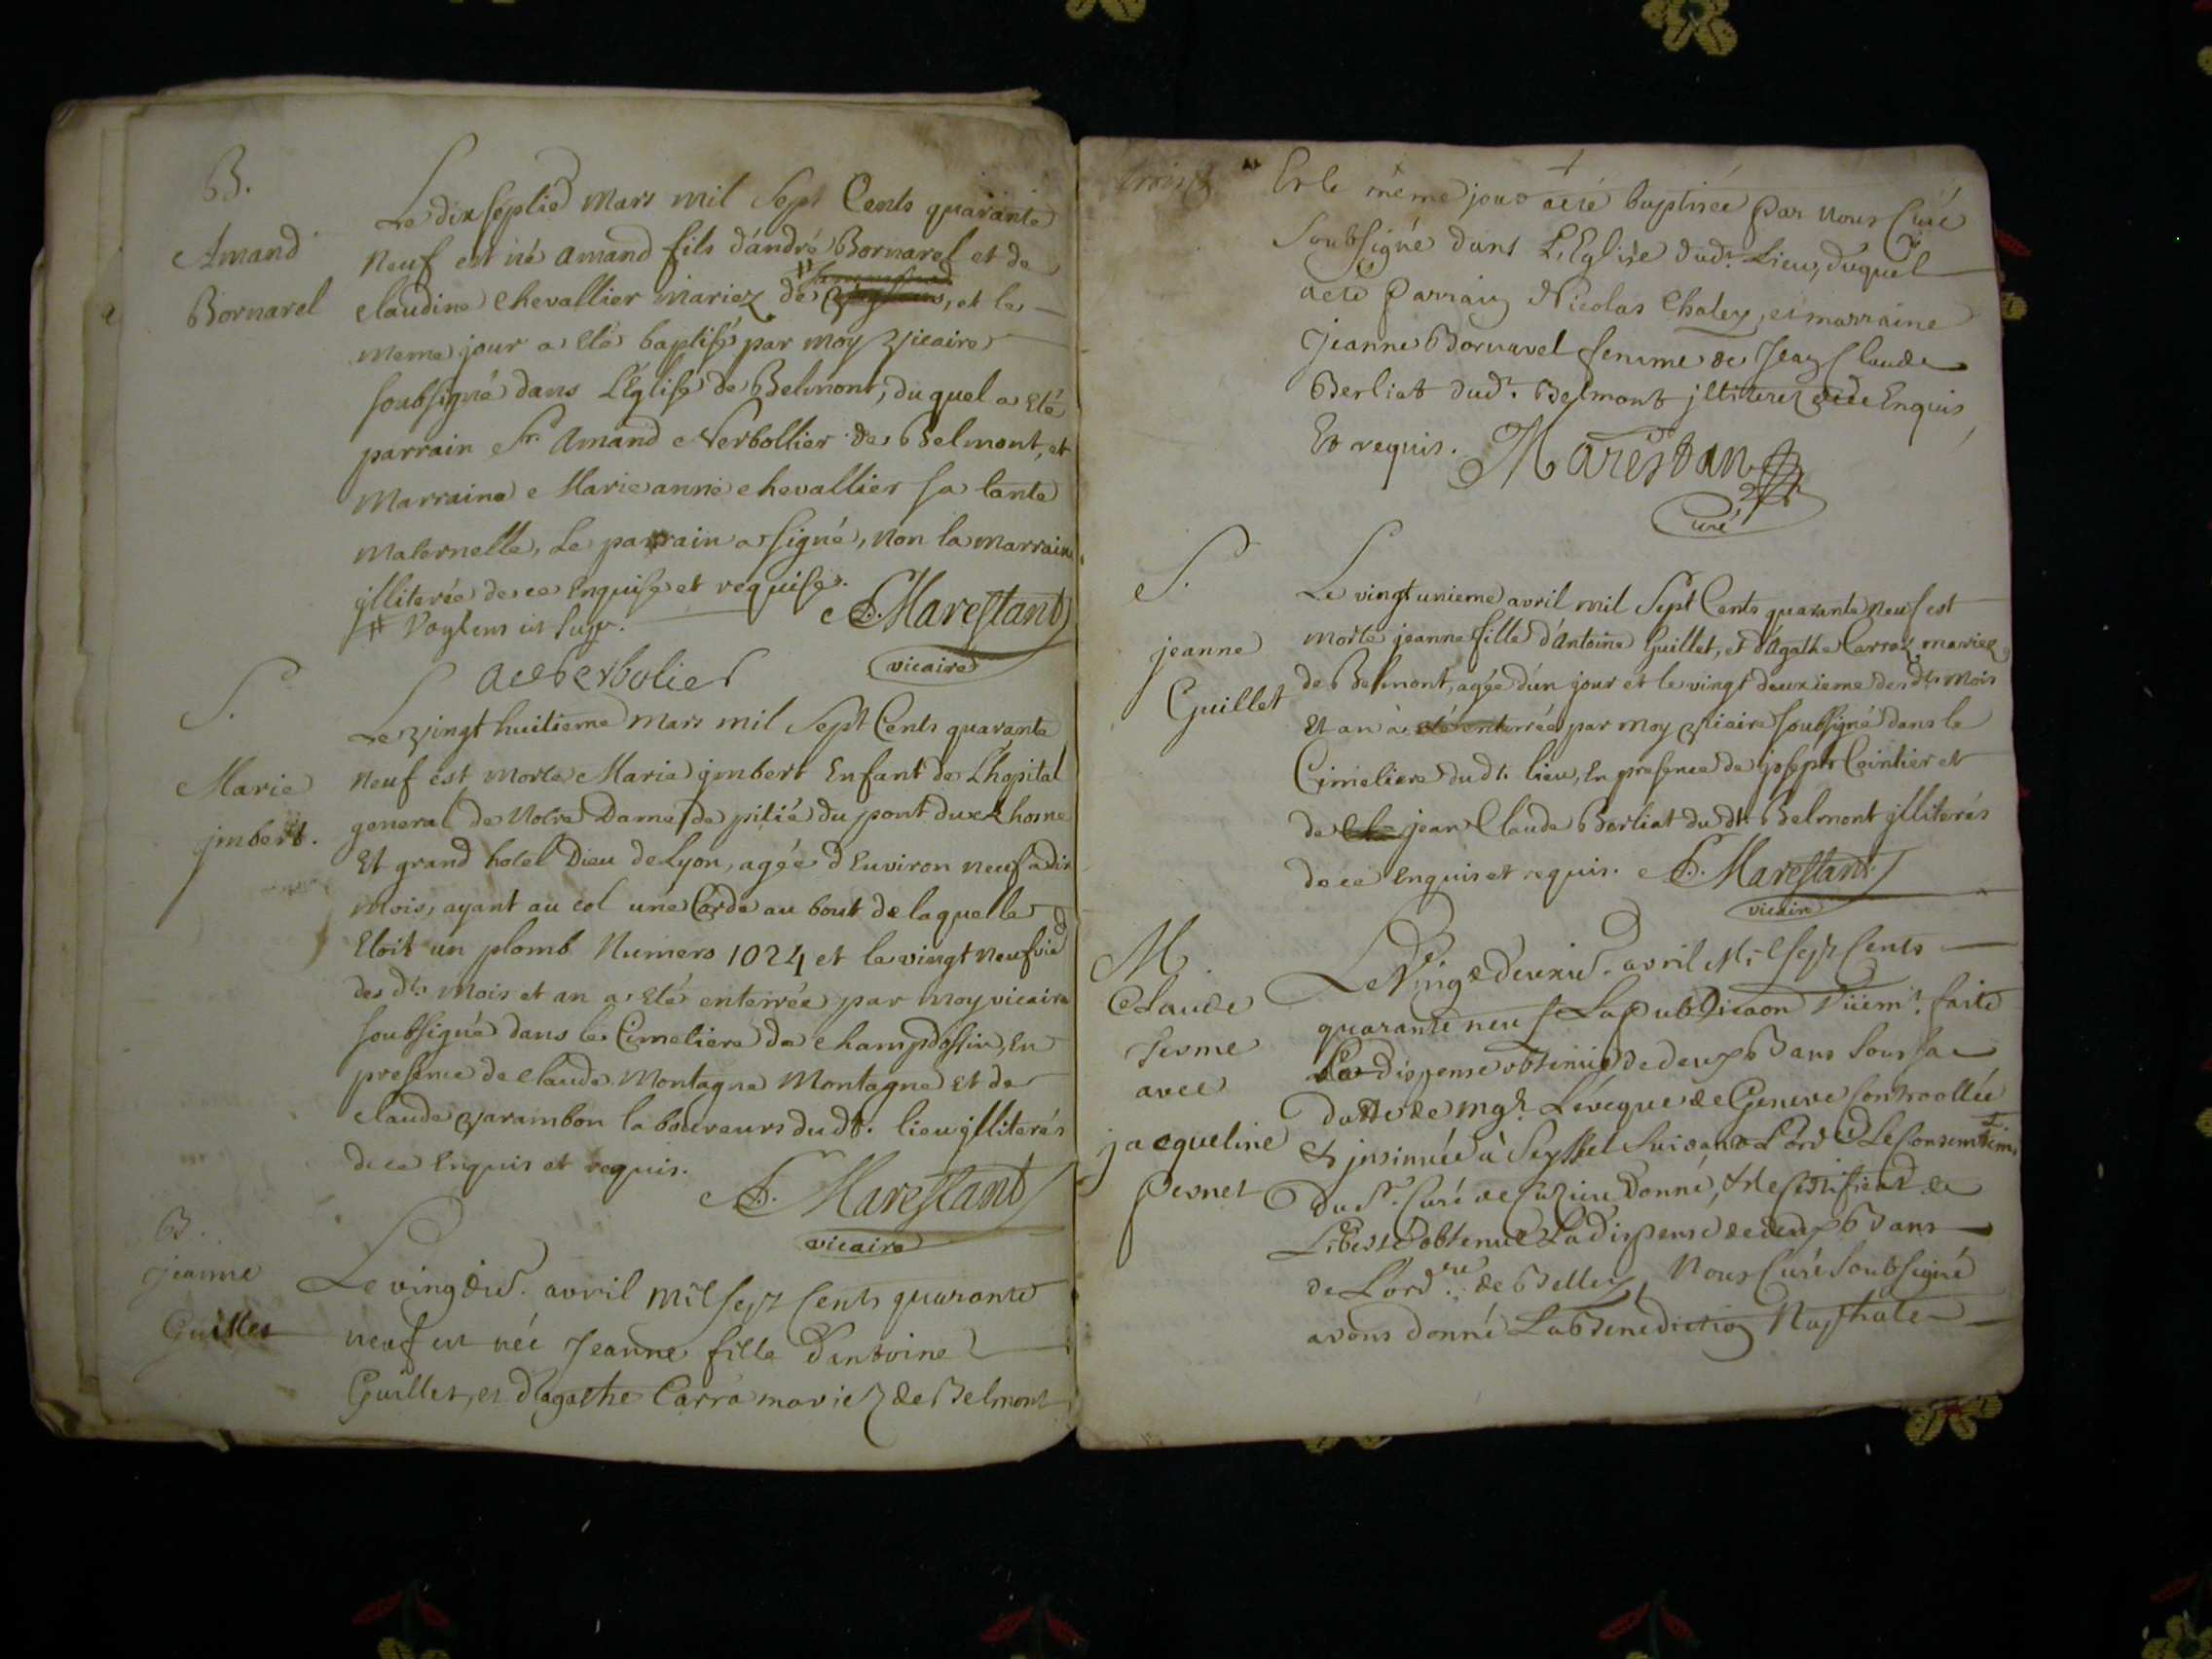 B.
Amand
Bornarel
Le dix septie mars mil Sept Cents quarante
neuf est né amand fils d'andré Bornarel et de
claudine chevallier mariez de et le
meme jour a eté baptisé par moy vicaire
soubsigné dans l'Eglise de Belmont, du quel a eté
parrain Sr. amand Verbollier de Belmont, et
marraine Marie anne chevallier sa tante
maternelle, Le parrain a signé, non la marraine
jlliterée de ce Enquise et requise.
# Voglens
Marestant
vicaire
averbolier
S.
Marie
jmbert.
Le vingt huitieme mars mil Sept Cents quarante
neuf est morte Marie jmbert Enfant de L'hopital
general de Notre Dame de pitié du pont du Rhosne
Et grand hotel Dieu de Lyon, agée d'Environ neuf a dix
mois, ayant au col une Corde au bout de laquelle
Etoit un plomb Numero 1024 et le vingt neufvie
des dts. mois et an a eté enterrée par moy vicaire
soubsigné dans le Cimetiere de champdossin, En
presence de claude Montagne Montagne et de
claude varambon laboureurs dudt. lieu jlliterés
de ce Enquis et requis.
Marestant
vicaire
B.
jeanne
Guillet
Le vingtie. avril mil sept Cents quarante
neuf est née Jeanne fille d'antoine
Guillet, et d'agathe Carra mariez de Belmont
Et le même jour a eté baptisée par nous Curé
Soubsigné dans L'Eglise dudt. Lieu, duquel
a eté parrain Nicolas Chaley, et marraine
Jeanne Bornarel femme de Jean Claude
Berliat dudt. Belmont jlliterez de ce Enquis
Et requis.
Marestan
Curé
S.
jeanne
Guillet
Le vingt unieme avril mil Sept Cents quarante neuf est
morte jeanne fille d'Antoine Guillet, et d'Agathe Carraz mariez
de Belmont, agée d'un jour et le vingt deuxieme des dts mois
Et an a eté enterrée par moy vicaire soubsigné dans le
Cimetiere dudt. lieu, En presence de joseph Cointier et
de jean Claude Berliat dudt. Belmont jlliterés
de ce Enquis et requis.
Marestant
vicaire
M.
Claude
Jesme
avec
jacqueline
pernet
Le Vingt deuxie. avril Mil sept Cents
quarante neuf La publicaon faite
La dispense obtenue de deux Bans sous la
datte de Mgr. L'eveque de Geneve Controollée
& jnsinuée à Seyssel suivant L'ord Le Consentem
du Sr. Curé de donné, & le Certificat de
Liberté obtenue La dispense de deux Bans
de L'ordre. de Belley, Nous Curé Soubsigné
avons donné La Benediction Nuptiale